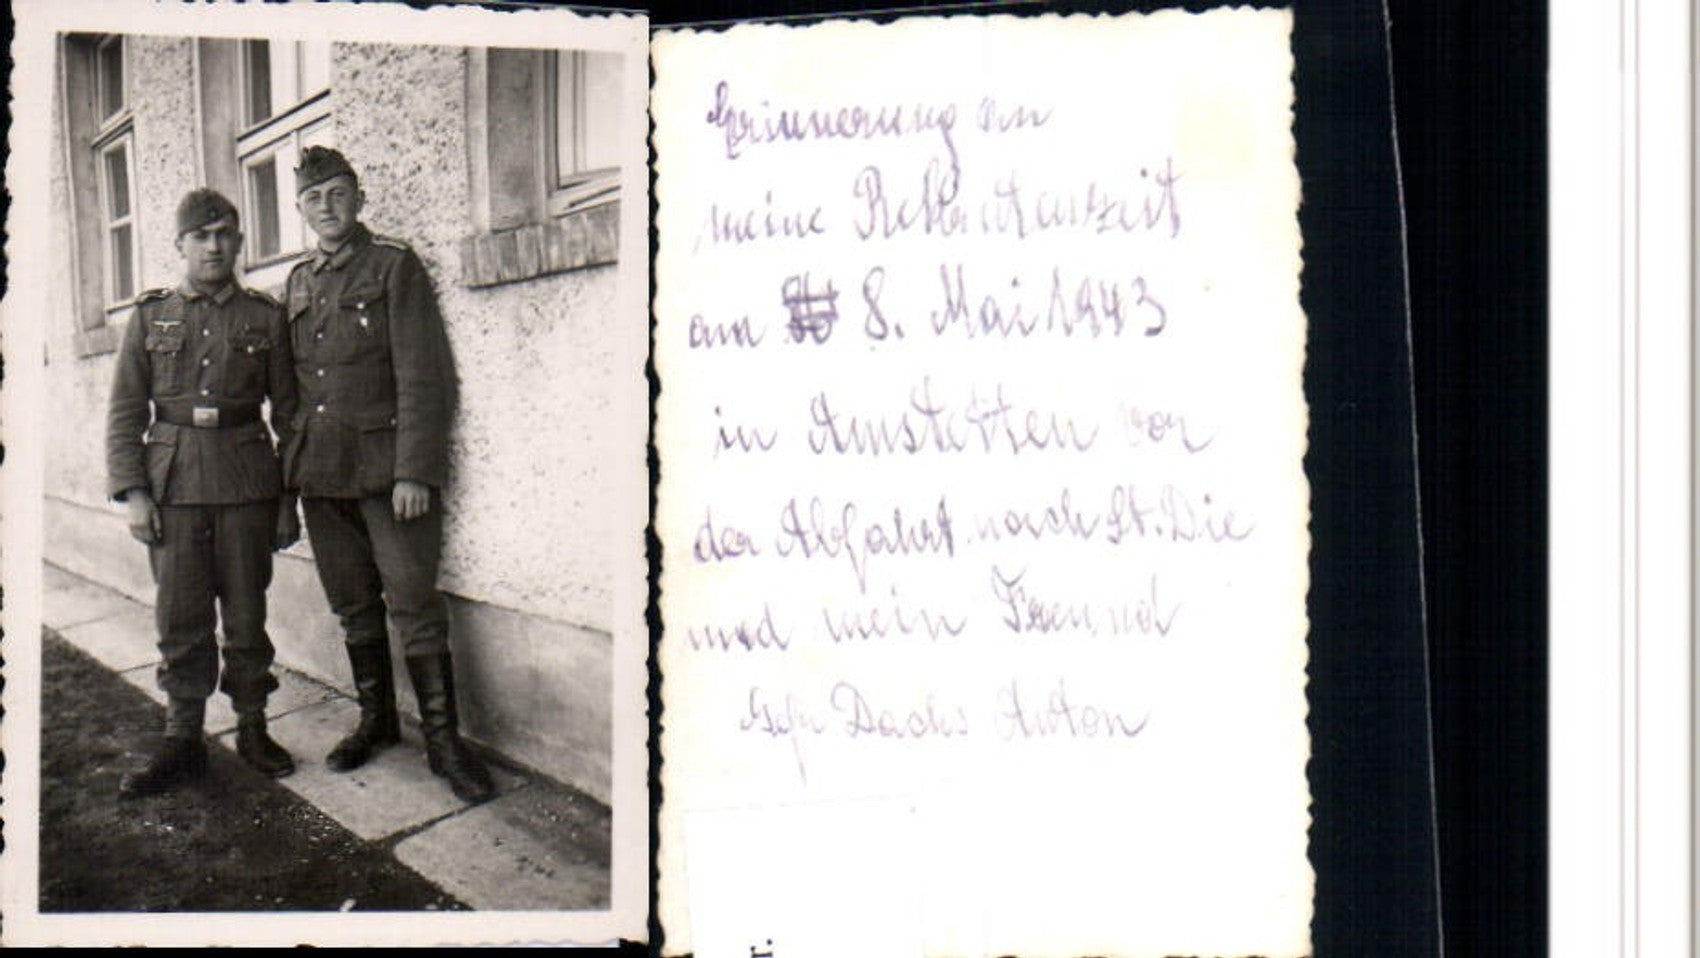 Erinnerung an
meine Rekrutenzeit
am 8. Mai 1943
in Amstetten vor
der Abfahrt nach St. Die
und mein Freund
Gefr Dachs Anton
r.